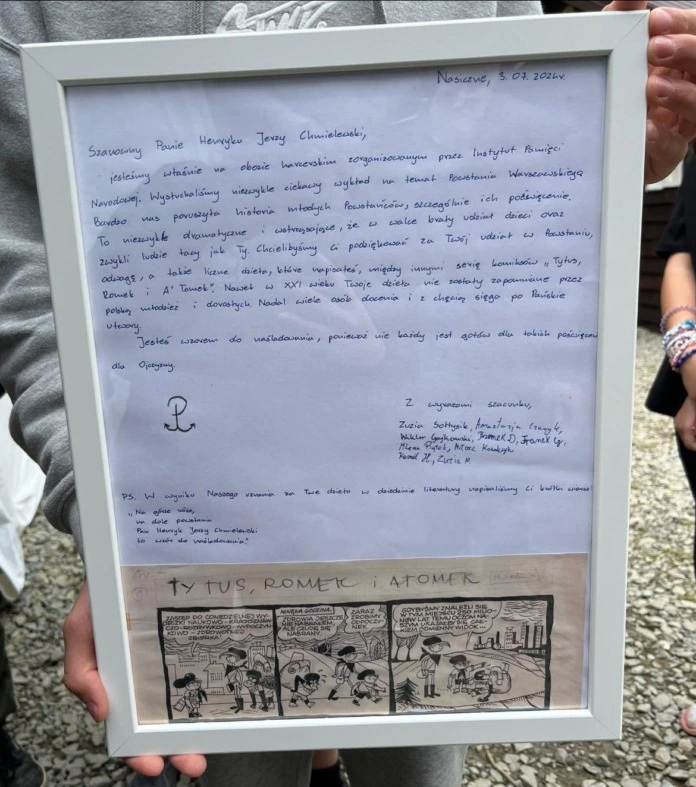 Nasiczne, 3.07.2024r.
Szanowny Panie Henryku Jerzy Chmielewski,
jesteśmy właśnie na obozie harcerskim zorganizowanym przez Instytut Pamięci
Narodowej. Wysłuchaliśmy niezwykle ciekawy wykład na temat Powstania Warszawskiego
Bardzo nas poruszyła historia młodych Powstańców, szczególnie ich poświęcenie.
To niezwykle dramatyczne i wstrząsające, że w walce brały udział dzieci oraz
zwykli ludzie tacy jak Ty. Chcielibyśmy Ci podziękować za Twój udział w Powstaniu,
odwagę, a także liczne dzieła, które napisałeś, między innymi serię komiksów „Tytus,
Romek i A'Tomek". Nawet w XXI wieku Twoje dzieła nie zostały zapomniane przez
polską młodzież i dorosłych. Nadal wiele osób docenia i z chęcią sięga po Pańskie
utwory.
Jesteś wzorem do naśladowania, ponieważ nie każdy jest gotów dla takich poświęceń
dla Ojczyzny.
Z wyrazami szacunku,
Zuzia Sołtysik, Anastazja
Wiktor Franek
Milena Piątek, Miłosz
Karol H., Zuzia M.
PS. W wyniku Naszego uznania za Twe dzieła w dziedzinie literatury napisaliśmy Ci krótki wiersz
„Na górze róże,
na dole powstanie
Pan Henryk Jerzy Chmielewski
to wzór do naśladowania."
TYTUS, ROMEK i ATOMEK
ZASTĘP DO CONIEDZIELNEJ WYCIECZKI NAUKOWO-KRAJOZNAW
CZO-ROZRYWKOWO-WYPOCZYN
KOWO-ZDROWOTNEJ
ZBIÓRKA!
MINĘŁA GODZINA.
ZDROWIA JESZCZE
NIE NABRAŁEM,
ALE CZUJĘ SIĘ
NABRANY.
ZARAZ
ZROBIMY
ODPOCZY
NEK.
GDYBYŚMY ZNALEŹLI SIĘ
W TYM MIEJSCU 250 MILIO-
NÓW LAT TEMU OCZOM NA-
SZYM UKAZAŁBY SIĘ CAŁ-
KIEM ODMIENNY WIDOK...